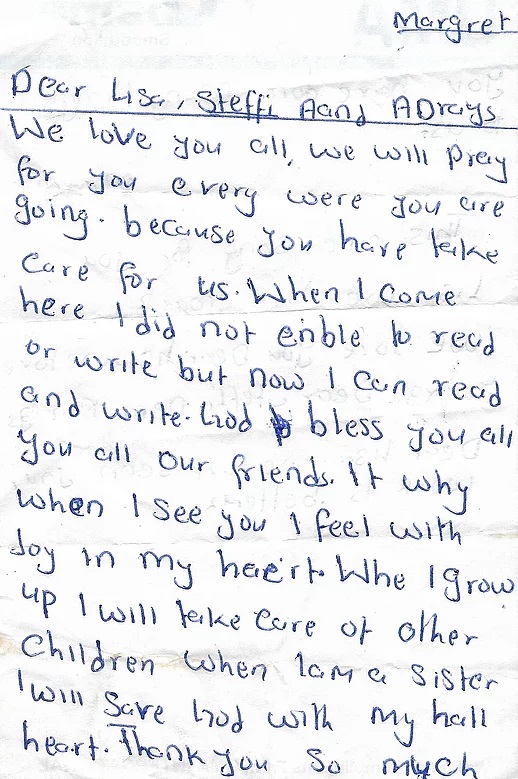 Margret
Dear Lisa, Steffi Aand ADrays
We love you all, we will pray
for you every were you are
going. because you have take
care for us. When I come
here I did not enble to read
or write but now I can read
and write. God bless you all
you all our friends. It why
when I see you I feel with
Joy in my heart. Whe I grow
up I will take care of other
children when I am a sister
I will Save God with my hall
heart. Thank you so much